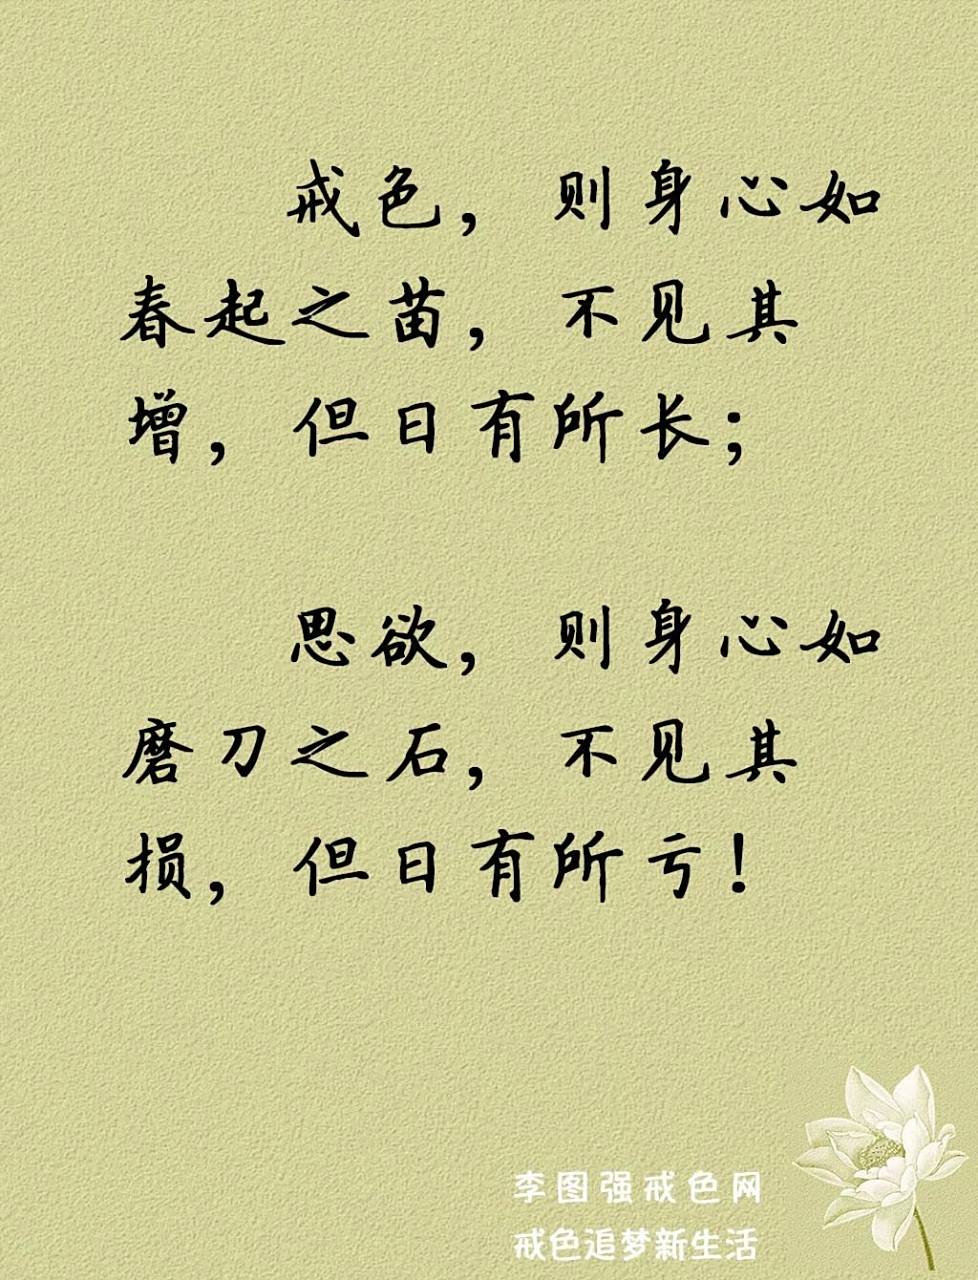 戒色，则身心如
春起之苗，不见其
增，但日有所长；
思欲，则身心如
磨刀之石，不见其
损，但日有所亏！
李图强戒色网
戒色追梦新生活